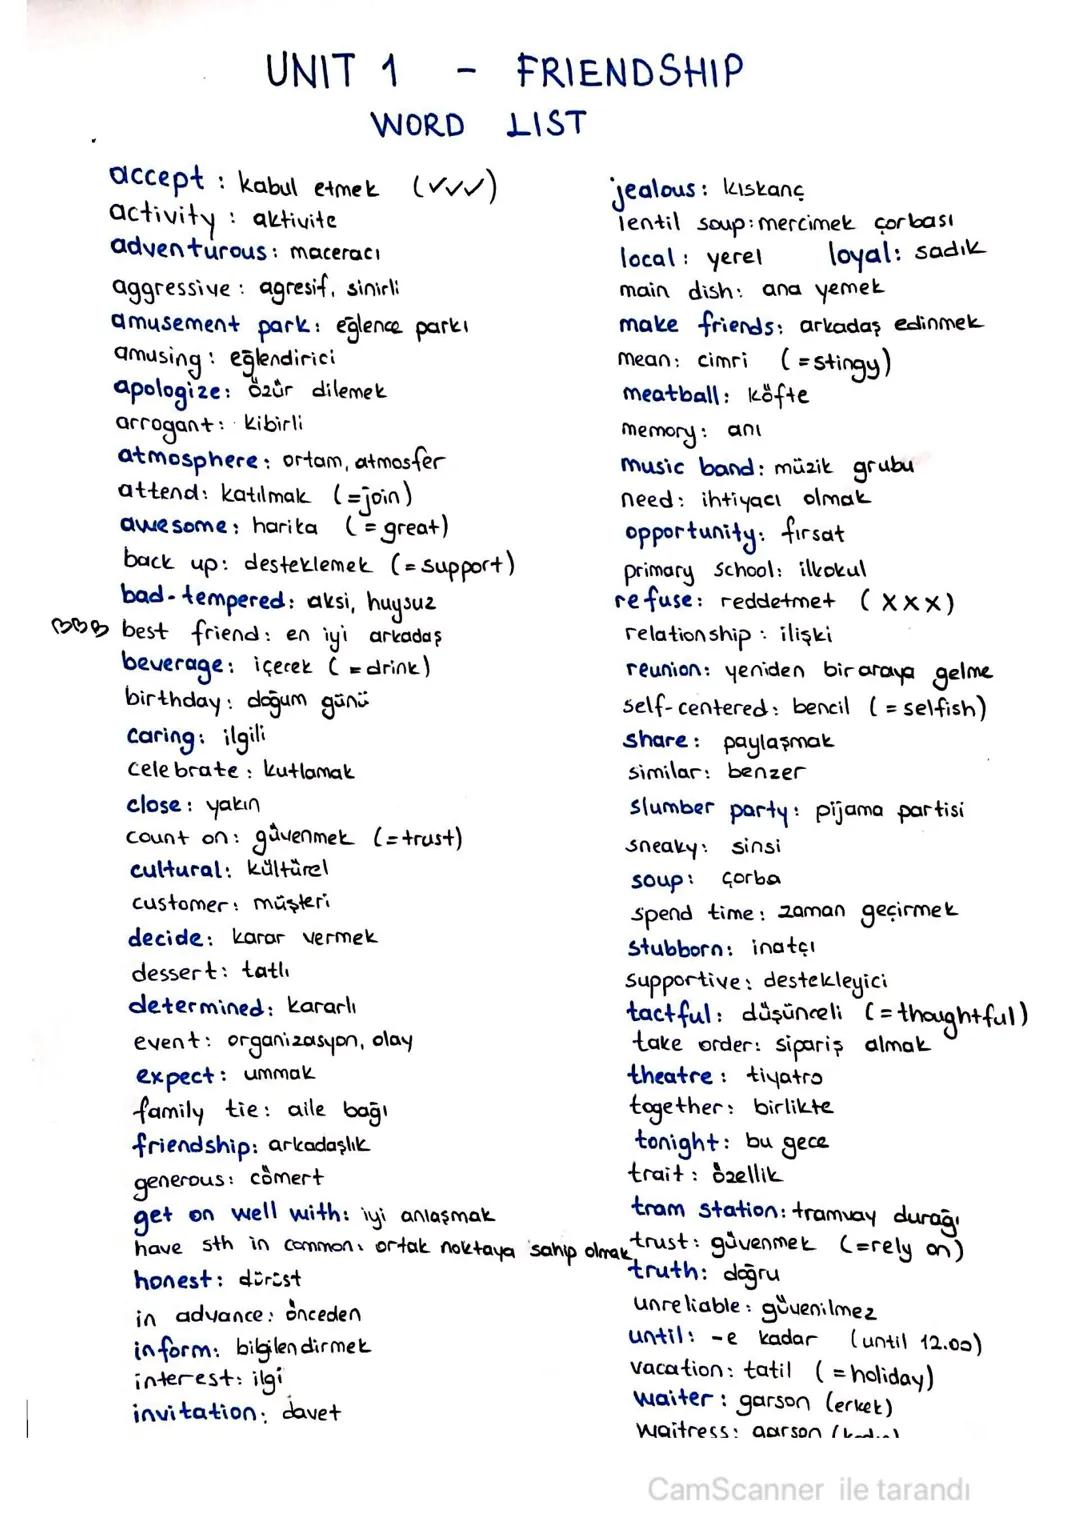 UNIT 1 - FRIENDSHIP
WORD LIST
accept : kabul etmek (✓✓✓)
activity : aktivite
adventurous : maceracı
aggressive : agresif, sinirli
amusement park : eğlence parkı
amusing : eğlendirici
apologize : özür dilemek
arrogant : kibirli
atmosphere : ortam, atmosfer
attend : katılmak (=join)
awesome : harika (=great)
back up : desteklemek (=support)
bad-tempered : aksi, huysuz
♡♡♡ best friend : en iyi arkadaş
beverage : içecek (=drink)
birthday : doğum günü
caring : ilgili
celebrate : kutlamak
close : yakın
count on : güvenmek (=trust)
cultural : kültürel
customer : müşteri
decide : karar vermek
dessert : tatlı
determined : kararlı
event : organizasyon, olay
expect : ummak
family tie : aile bağı
friendship : arkadaşlık
generous : cömert
get on well with : iyi anlaşmak
have sth in common : ortak noktaya sahip olmak
honest : dürüst
in advance : önceden
inform : bilgilendirmek
interest : ilgi
invitation : davet
jealous : kıskanç
lentil soup : mercimek çorbası
local : yerel loyal : sadık
main dish : ana yemek
make friends : arkadaş edinmek
mean : cimri (=stingy)
meatball : köfte
memory : anı
music band : müzik grubu
need : ihtiyacı olmak
opportunity : fırsat
primary school : ilkokul
refuse : reddetmet (XXX)
relationship : ilişki
reunion : yeniden bir araya gelme
self-centered : bencil (=selfish)
share : paylaşmak
similar : benzer
slumber party : pijama partisi
sneaky : sinsi
soup : çorba
spend time : zaman geçirmek
stubborn : inatçı
supportive : destekleyici
tactful : düşünceli (=thoughtful)
take order : sipariş almak
theatre : tiyatro
together : birlikte
tonight : bu gece
trait : özellik
tram station : tramvay durağı
trust : güvenmek (=rely on)
truth : doğru
unreliable : güvenilmez
until : -e kadar (until 12.00)
vacation : tatil (=holiday)
waiter : garson (erkek)
waitress : garson
CamScanner ile tarandı